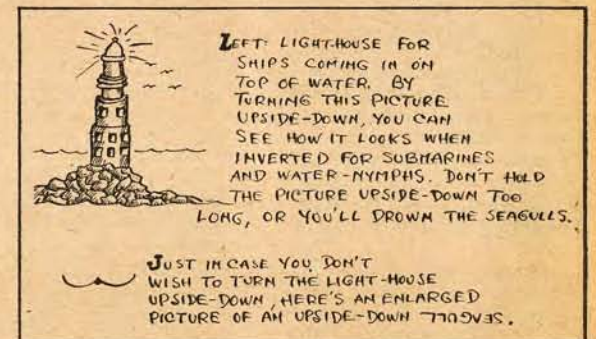 LEFT: LIGHT-HOUSE FOR
SHIPS COMING IN ON
TOP OF WATER. BY
TURNING THIS PICTURE
UPSIDE-DOWN, YOU CAN
SEE HOW IT LOOKS WHEN
INVERTED FOR SUBMARINES
AND WATER-NYMPHS. DON'T HOLD
THE PICTURE UPSIDE-DOWN TOO
LONG, OR YOU'LL DROWN THE SEAGULLS.
JUST IN CASE YOU DON'T
WISH TO TURN THE LIGHT-HOUSE
UPSIDE-DOWN, HERE'S AN ENLARGED
PICTURE OF AN UPSIDE-DOWN SEAGULL.